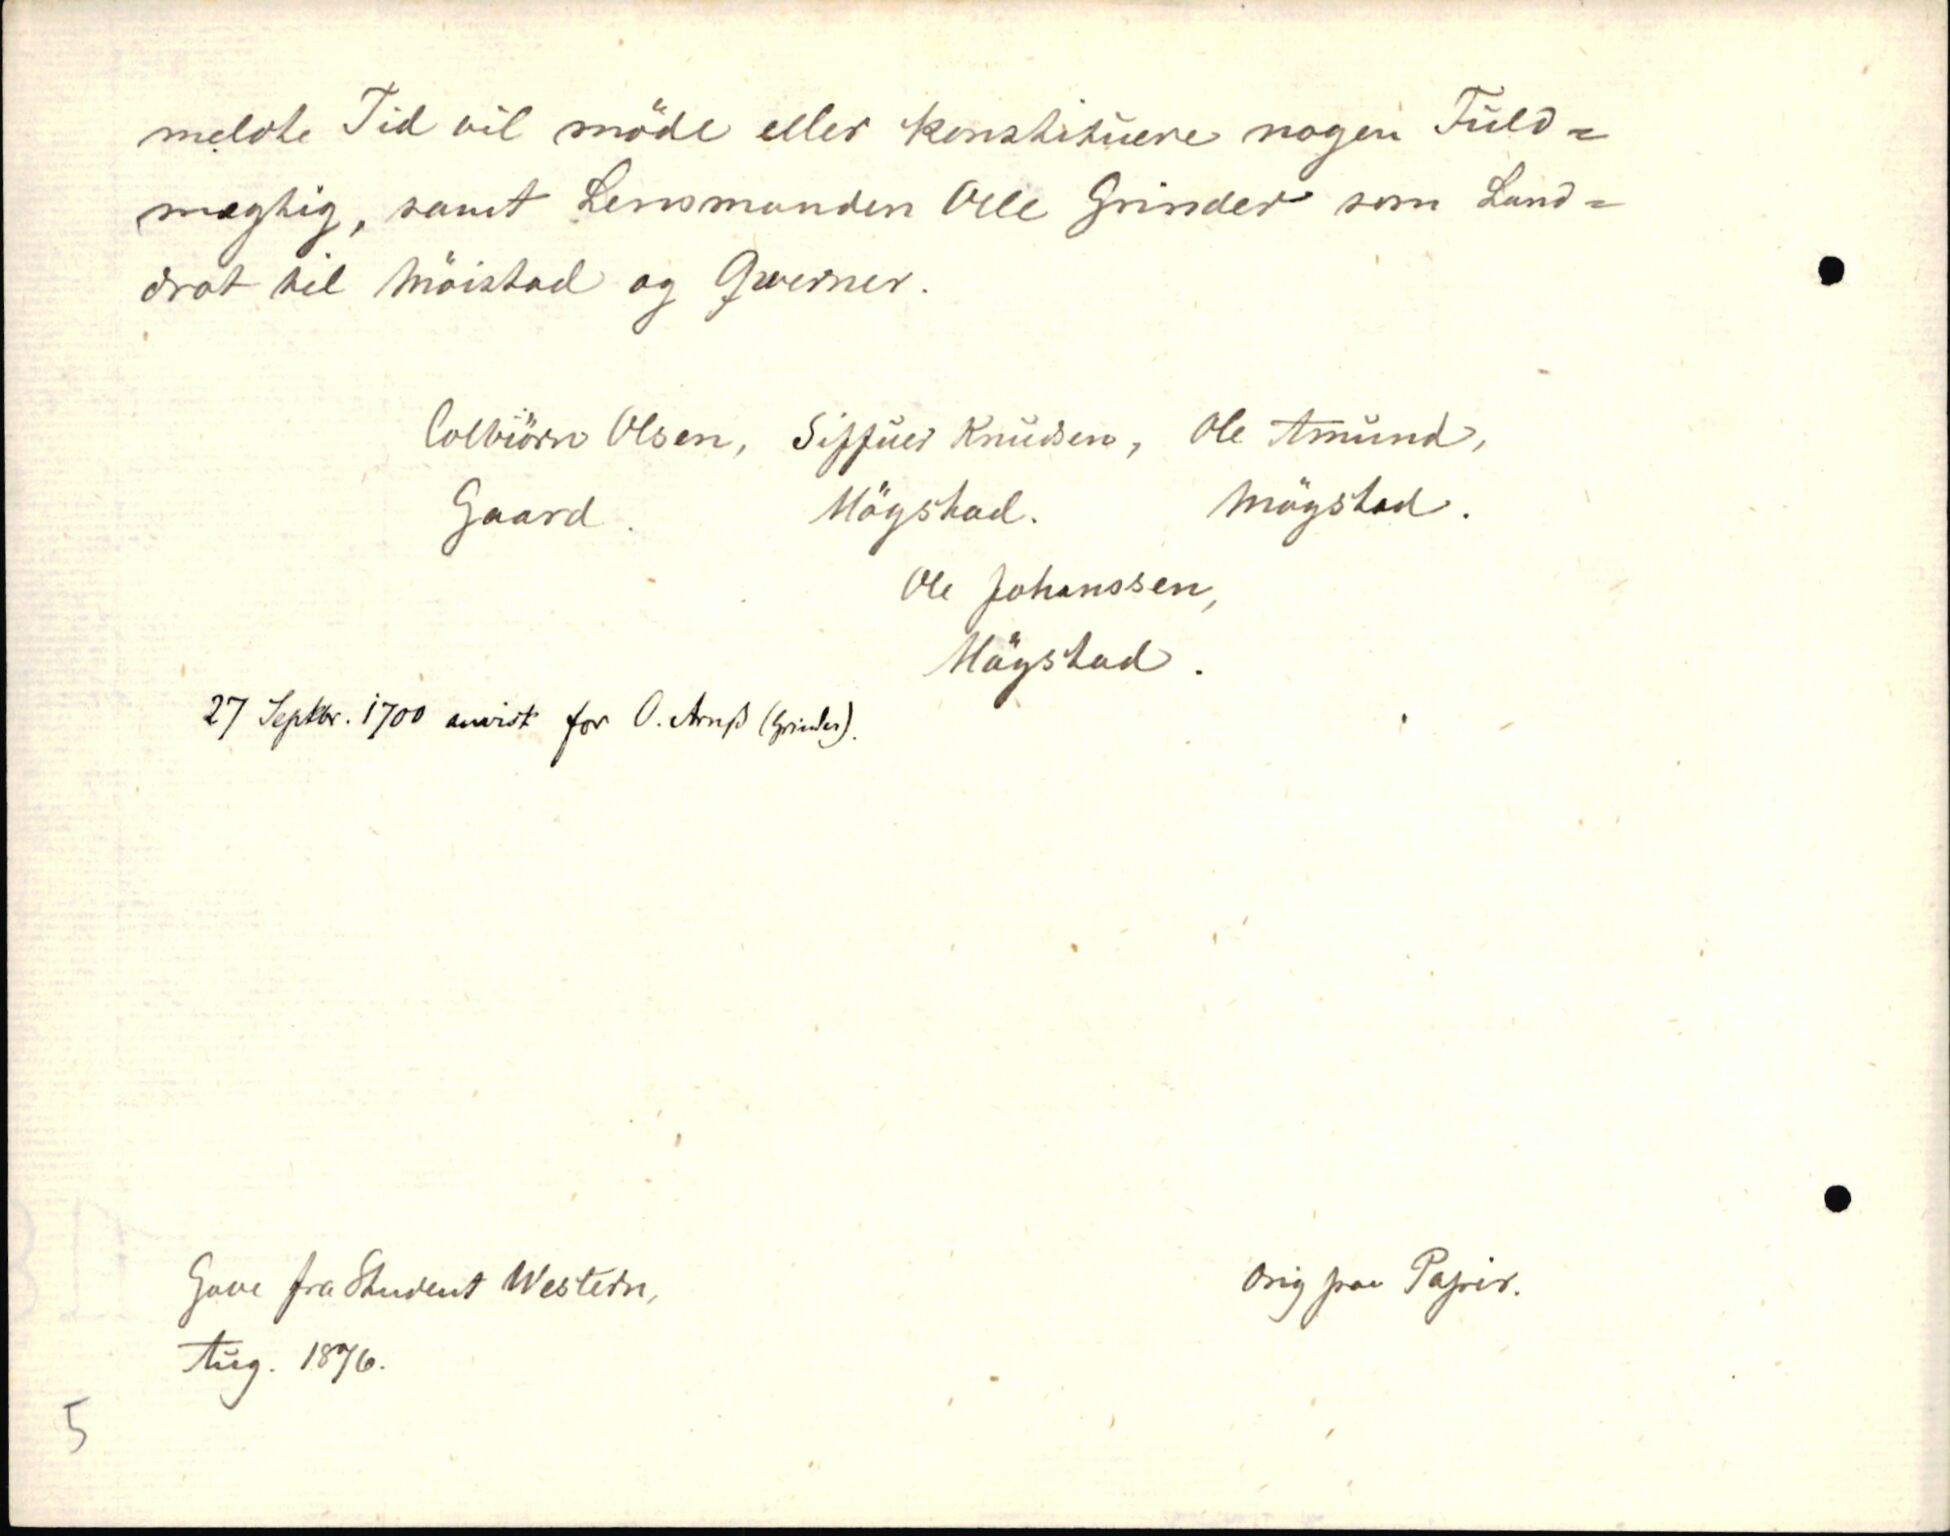 meldte Tid vil möde eller konstituere nogen Fuld=
mægtig, samt Lensmanden Olle Grinder som Land=
drot til Möistad og Qwerner.
Colbiörn Olsen, Siffuer Knudsen, Ole Amund,
Gaard. Högstad. Mögstad.
Ole Johanssen,
Högstad.
27 Septbr. 1700 anvist for O. Arnß (Grinder).
Gave fra Student Western,
Aug. 1876.
Orig paa Papir.
5